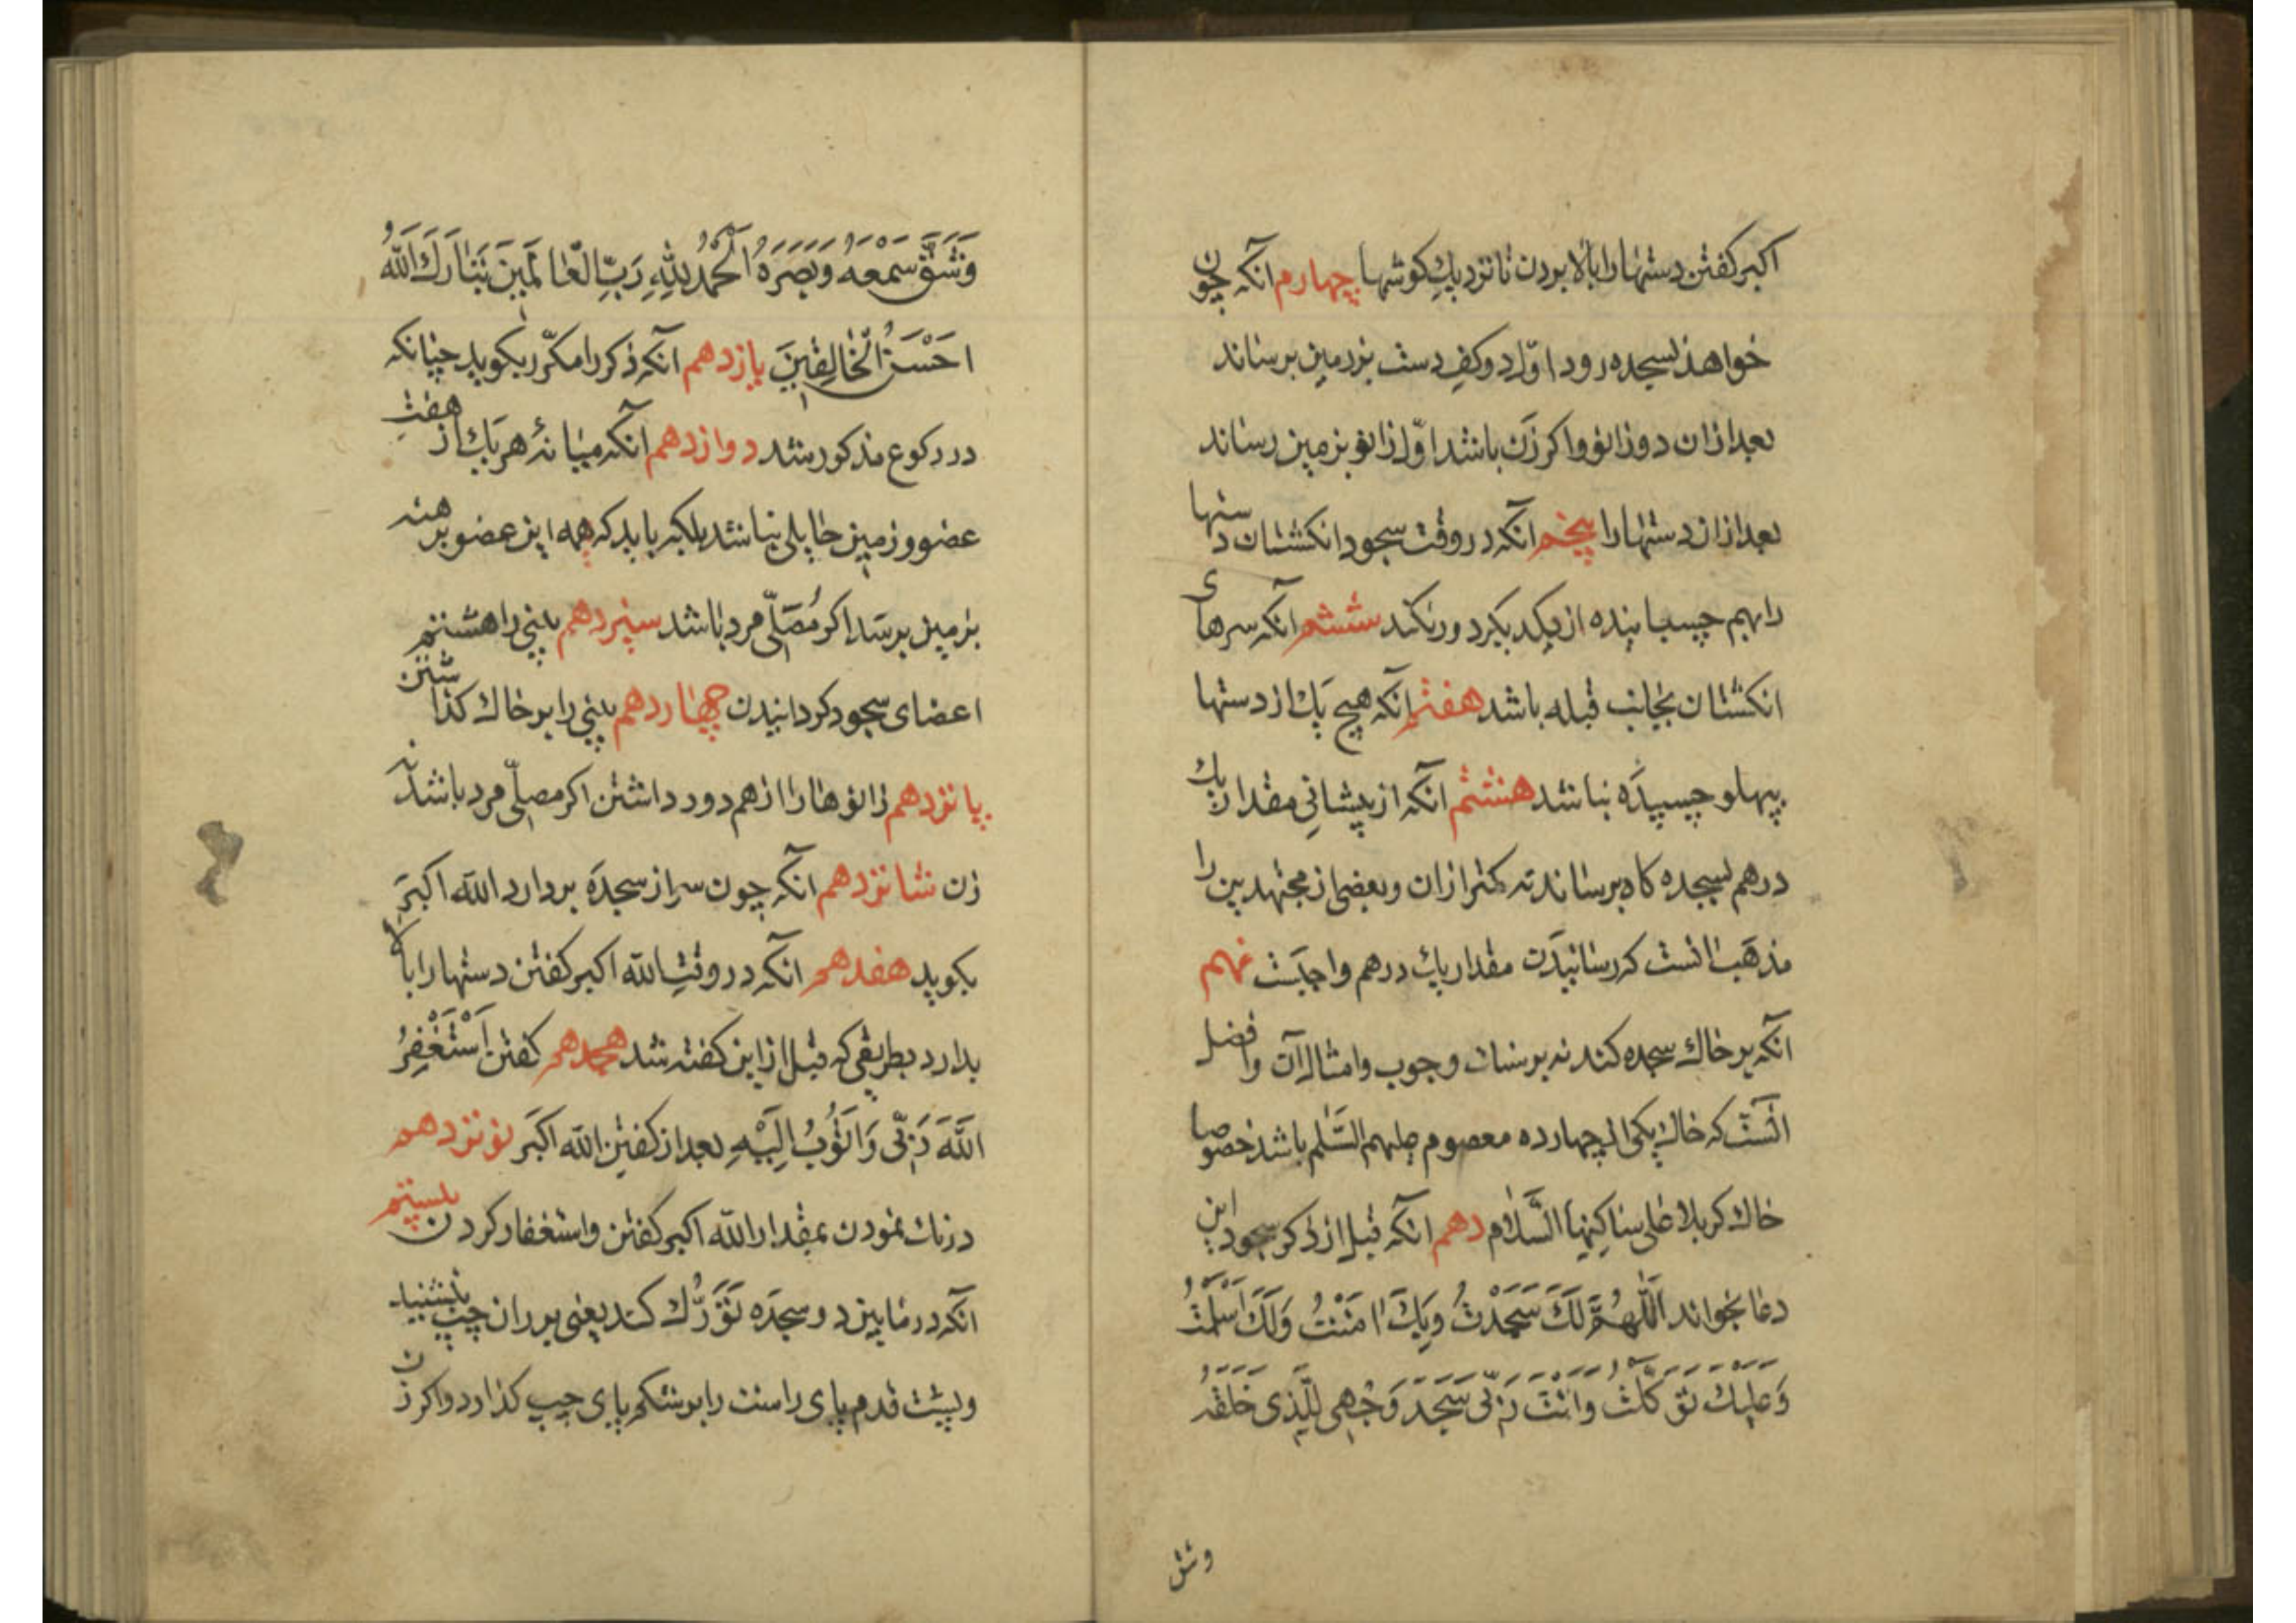 اکبر کفتن دستها را بالا بردن تا نزدیك کوشها چهارم آنکه چون
خواهد بسجده رود اوّل دو کف دست بزرمین برساند
بعد ازان دو زانو و اکر زن باشد اوّل زانو بزمین رساند
بعد ازان دستها را پنجم آنکه در وقت سجود انکشتان دستها
را بهم چسبانیده از یکدیکر دور نکند ششم آنکه سرهای
انکشتان بجانب قبله باشد هفتم آنکه هیچ یك از دستها
پهلو چسپیده نباشد هشتم آنکه از پیشانی مقدار یك
درهم بسجده کاه برساند نه کمتر ازان وبعضی از مجتهدین را
مذهب انست که رسانیدن مقدار یك درهم واجبست نهم
آنکه بر خاك سجده کند نه بر سنك و چوب وامثال آن وافضل
انست که خاك یکی از چهارده معصوم علیهم السّلم باشد خصوصا
خاك کربلا علی ساکنها السّلام دهم آنکه قبل از ذکر سجود این
دعا بخواند اَللّٰهُمَّ لَكَ سَجَدْتُ وَبِكَ اٰمَنْتُ وَلَكَ اَسْلَمْتُ
وَعَلَیْكَ تَوَکَّلْتُ وَاَنْتَ رَبّی سَجَدَ وَجْهِی لِلَّذی خَلَقَهُ
وشق
وَشَقَّ سَمْعَهُ وَبَصَرَهُ اَلْحَمْدُ لِلّٰهِ رَبِّ الْعٰالَمینَ تَبٰارَكَ اللّٰهُ
اَحْسَنُ الْخٰالِقینَ یازدهم آنکه ذکر را مکرّر بکوید چنانکه
در رکوع مذکور شد دوازدهم آنکه میانهٔ هر یك از هفت
عضو و زمین حایلی نباشد بلکه باید که همه این عضو برهنه
بزمین برسد اکر مُصَلّی مرد باشد سیزدهم بینی را هشتم
اعضای سجود کردانیدن چهاردهم بینی را بر خاك کذاشتن
پانزدهم زانوها را از هم دور داشتن اکر مصلّی مرد باشد نه
زن شانزدهم آنکه چون سر از سجده بردارد الله اکبر
بکوید هفدهم آنکه در وقت الله اکبر کفتن دستها را بالا
بدارد بطریقی که قبل ازاین کفته شد هجدهم کفتن اَسْتَغْفِرُ
اللّٰهَ رَبّی وَاَتُوبُ اِلَیْهِ بعد از کفتن الله اکبر نوزدهم
درنك نمودن بمقدار الله اکبر کفتن واستغفار کردن بیستم
آنکه در مابین دو سجده تَوَرُّك کند یعنی بر ران چپ بنشیند
وپشت قدم پای راست را بر شکم پای چپ کذارد واکر زن